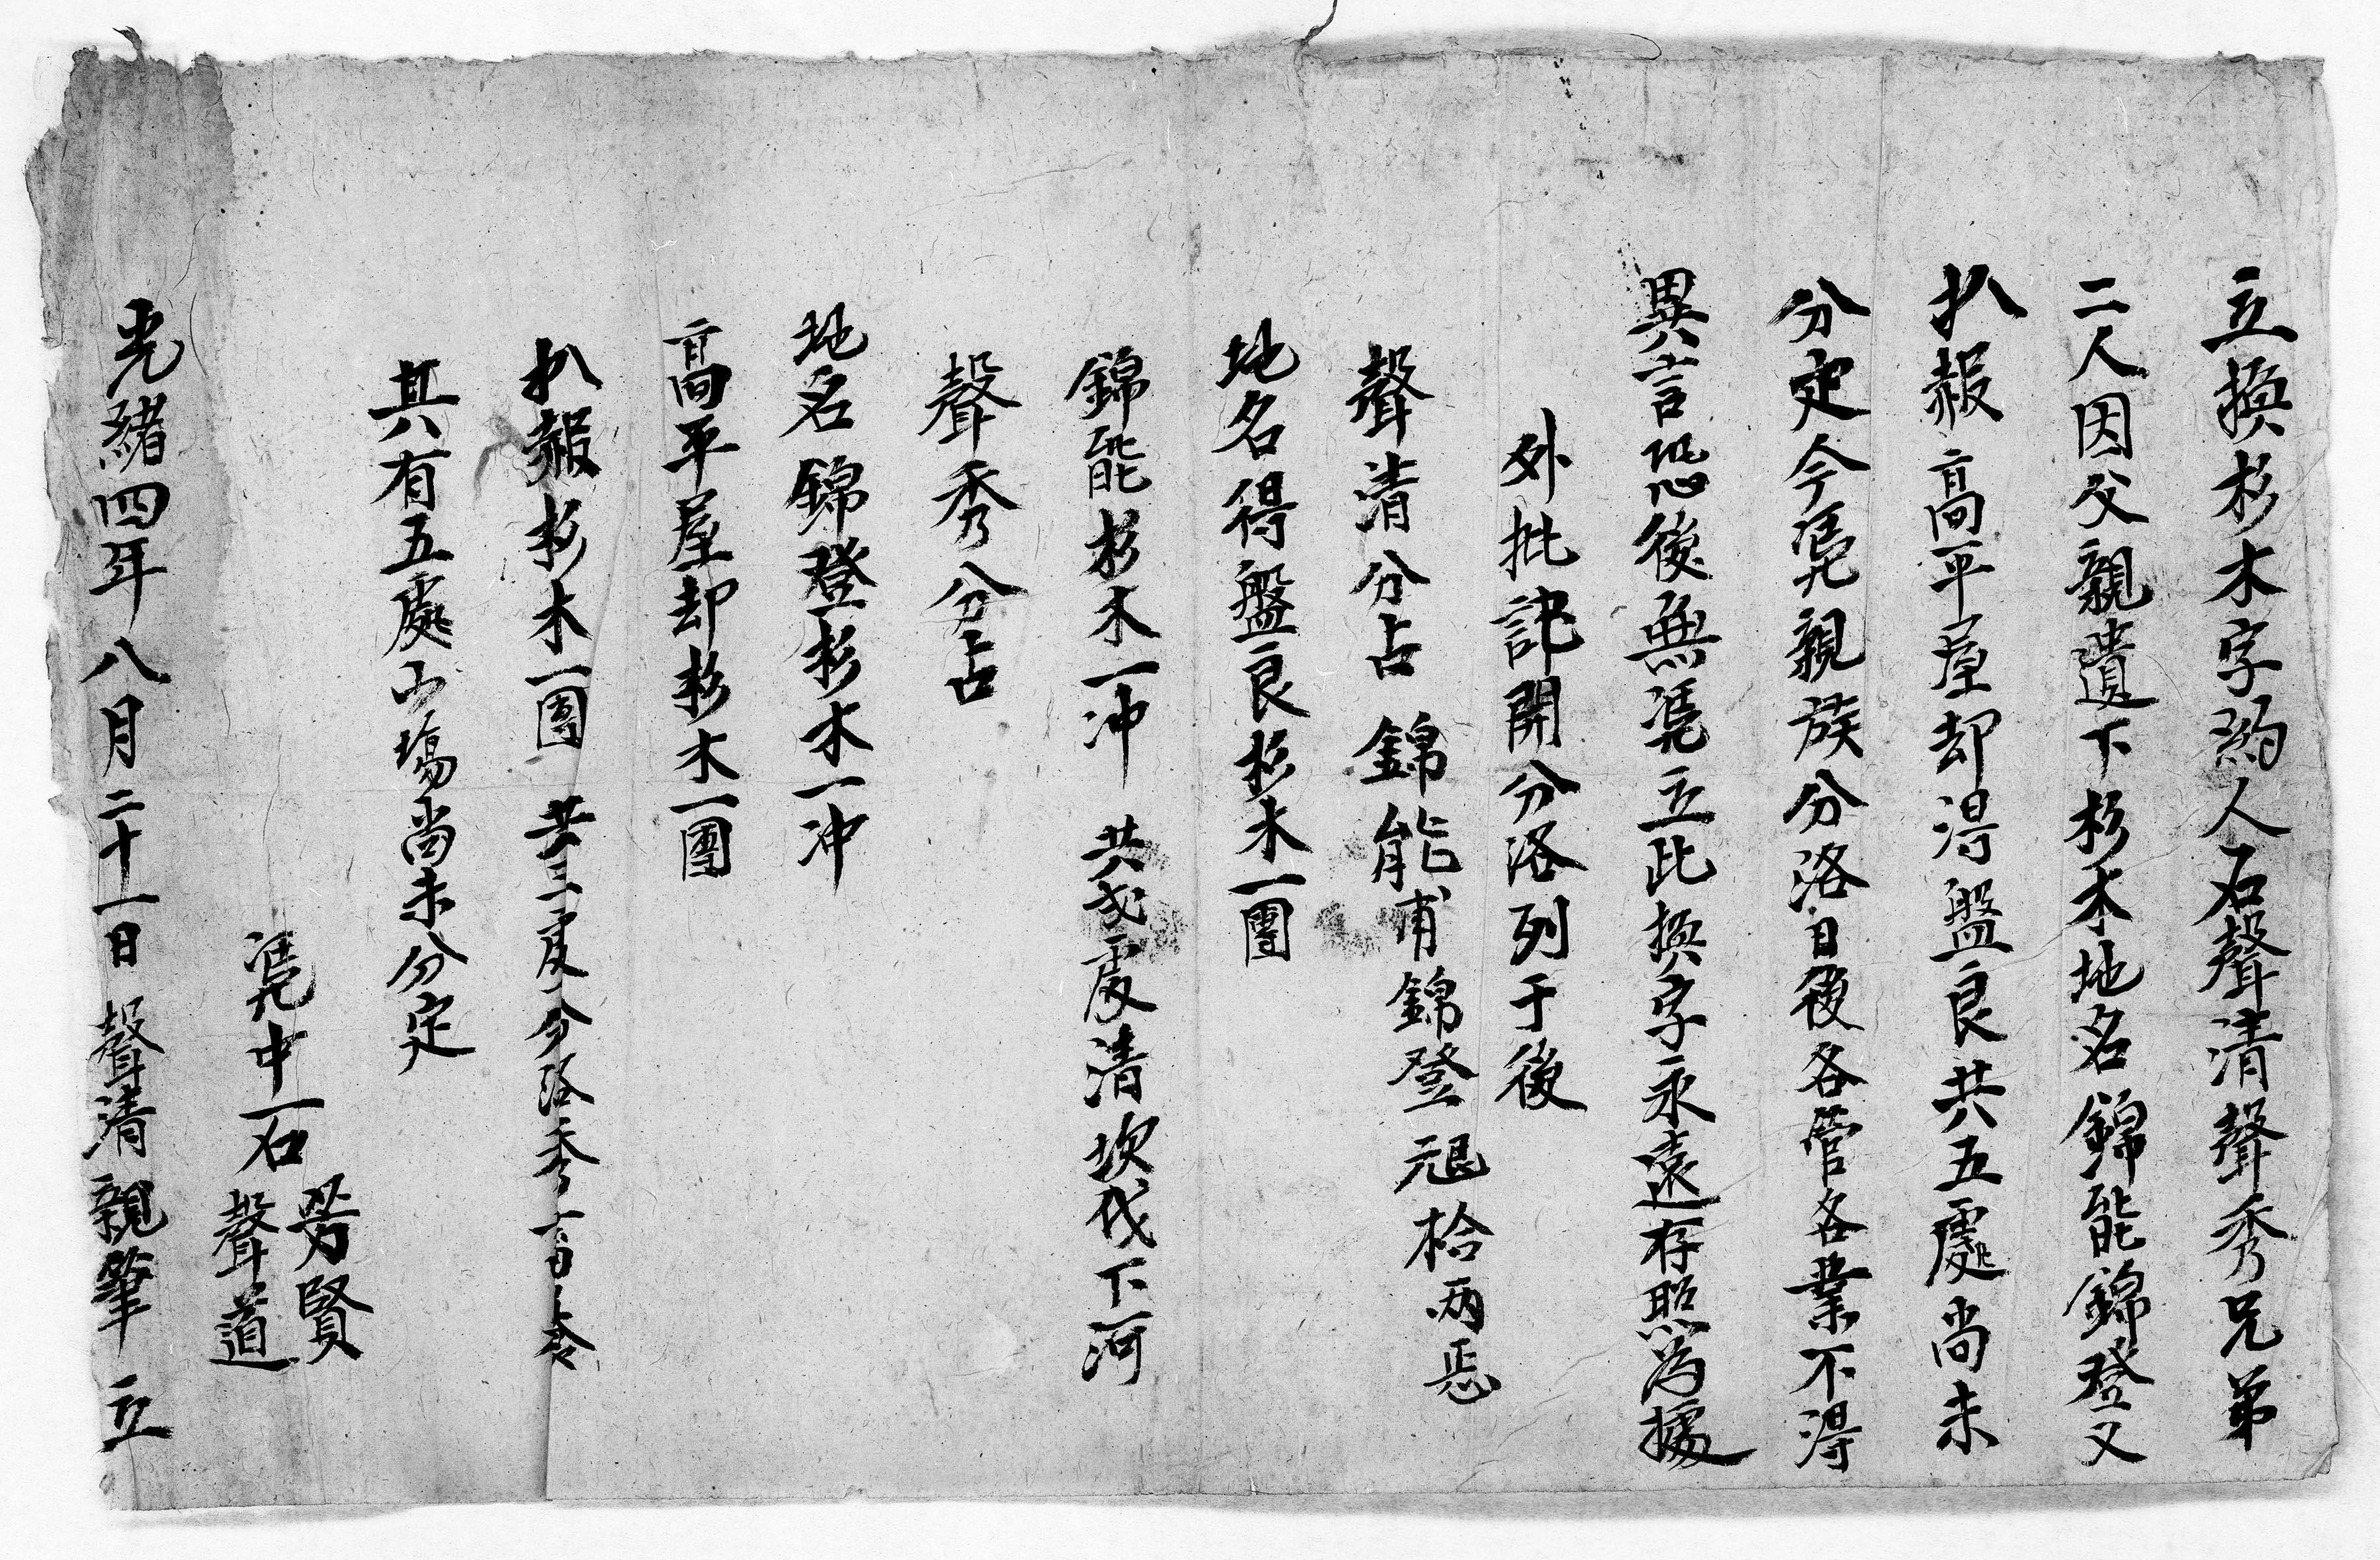 立換杉木字約人石聲清聲秀兄弟
二人因父親遺下杉木地名錦能錦登又
扒赧高平屋却淂盤良共五處尚未
分定今凭親族分洛日後各管各業不淂
異言恐後無凴立此換字永遠存照為據
外批評開分洛列于後
聲清分占 錦能甫錦登 拾兩
地名得盤良杉木一團
錦能杉木一冲 共弍處清坎伐下河
聲秀分占
地名錦登杉木一冲
高平屋却杉木一團
扒赧杉木一團 共三處分洛秀畜禁
其有五處山塲尚未分定
凴中石 芳賢 聲道
光緒四年八月二十一日 聲清親筆 立